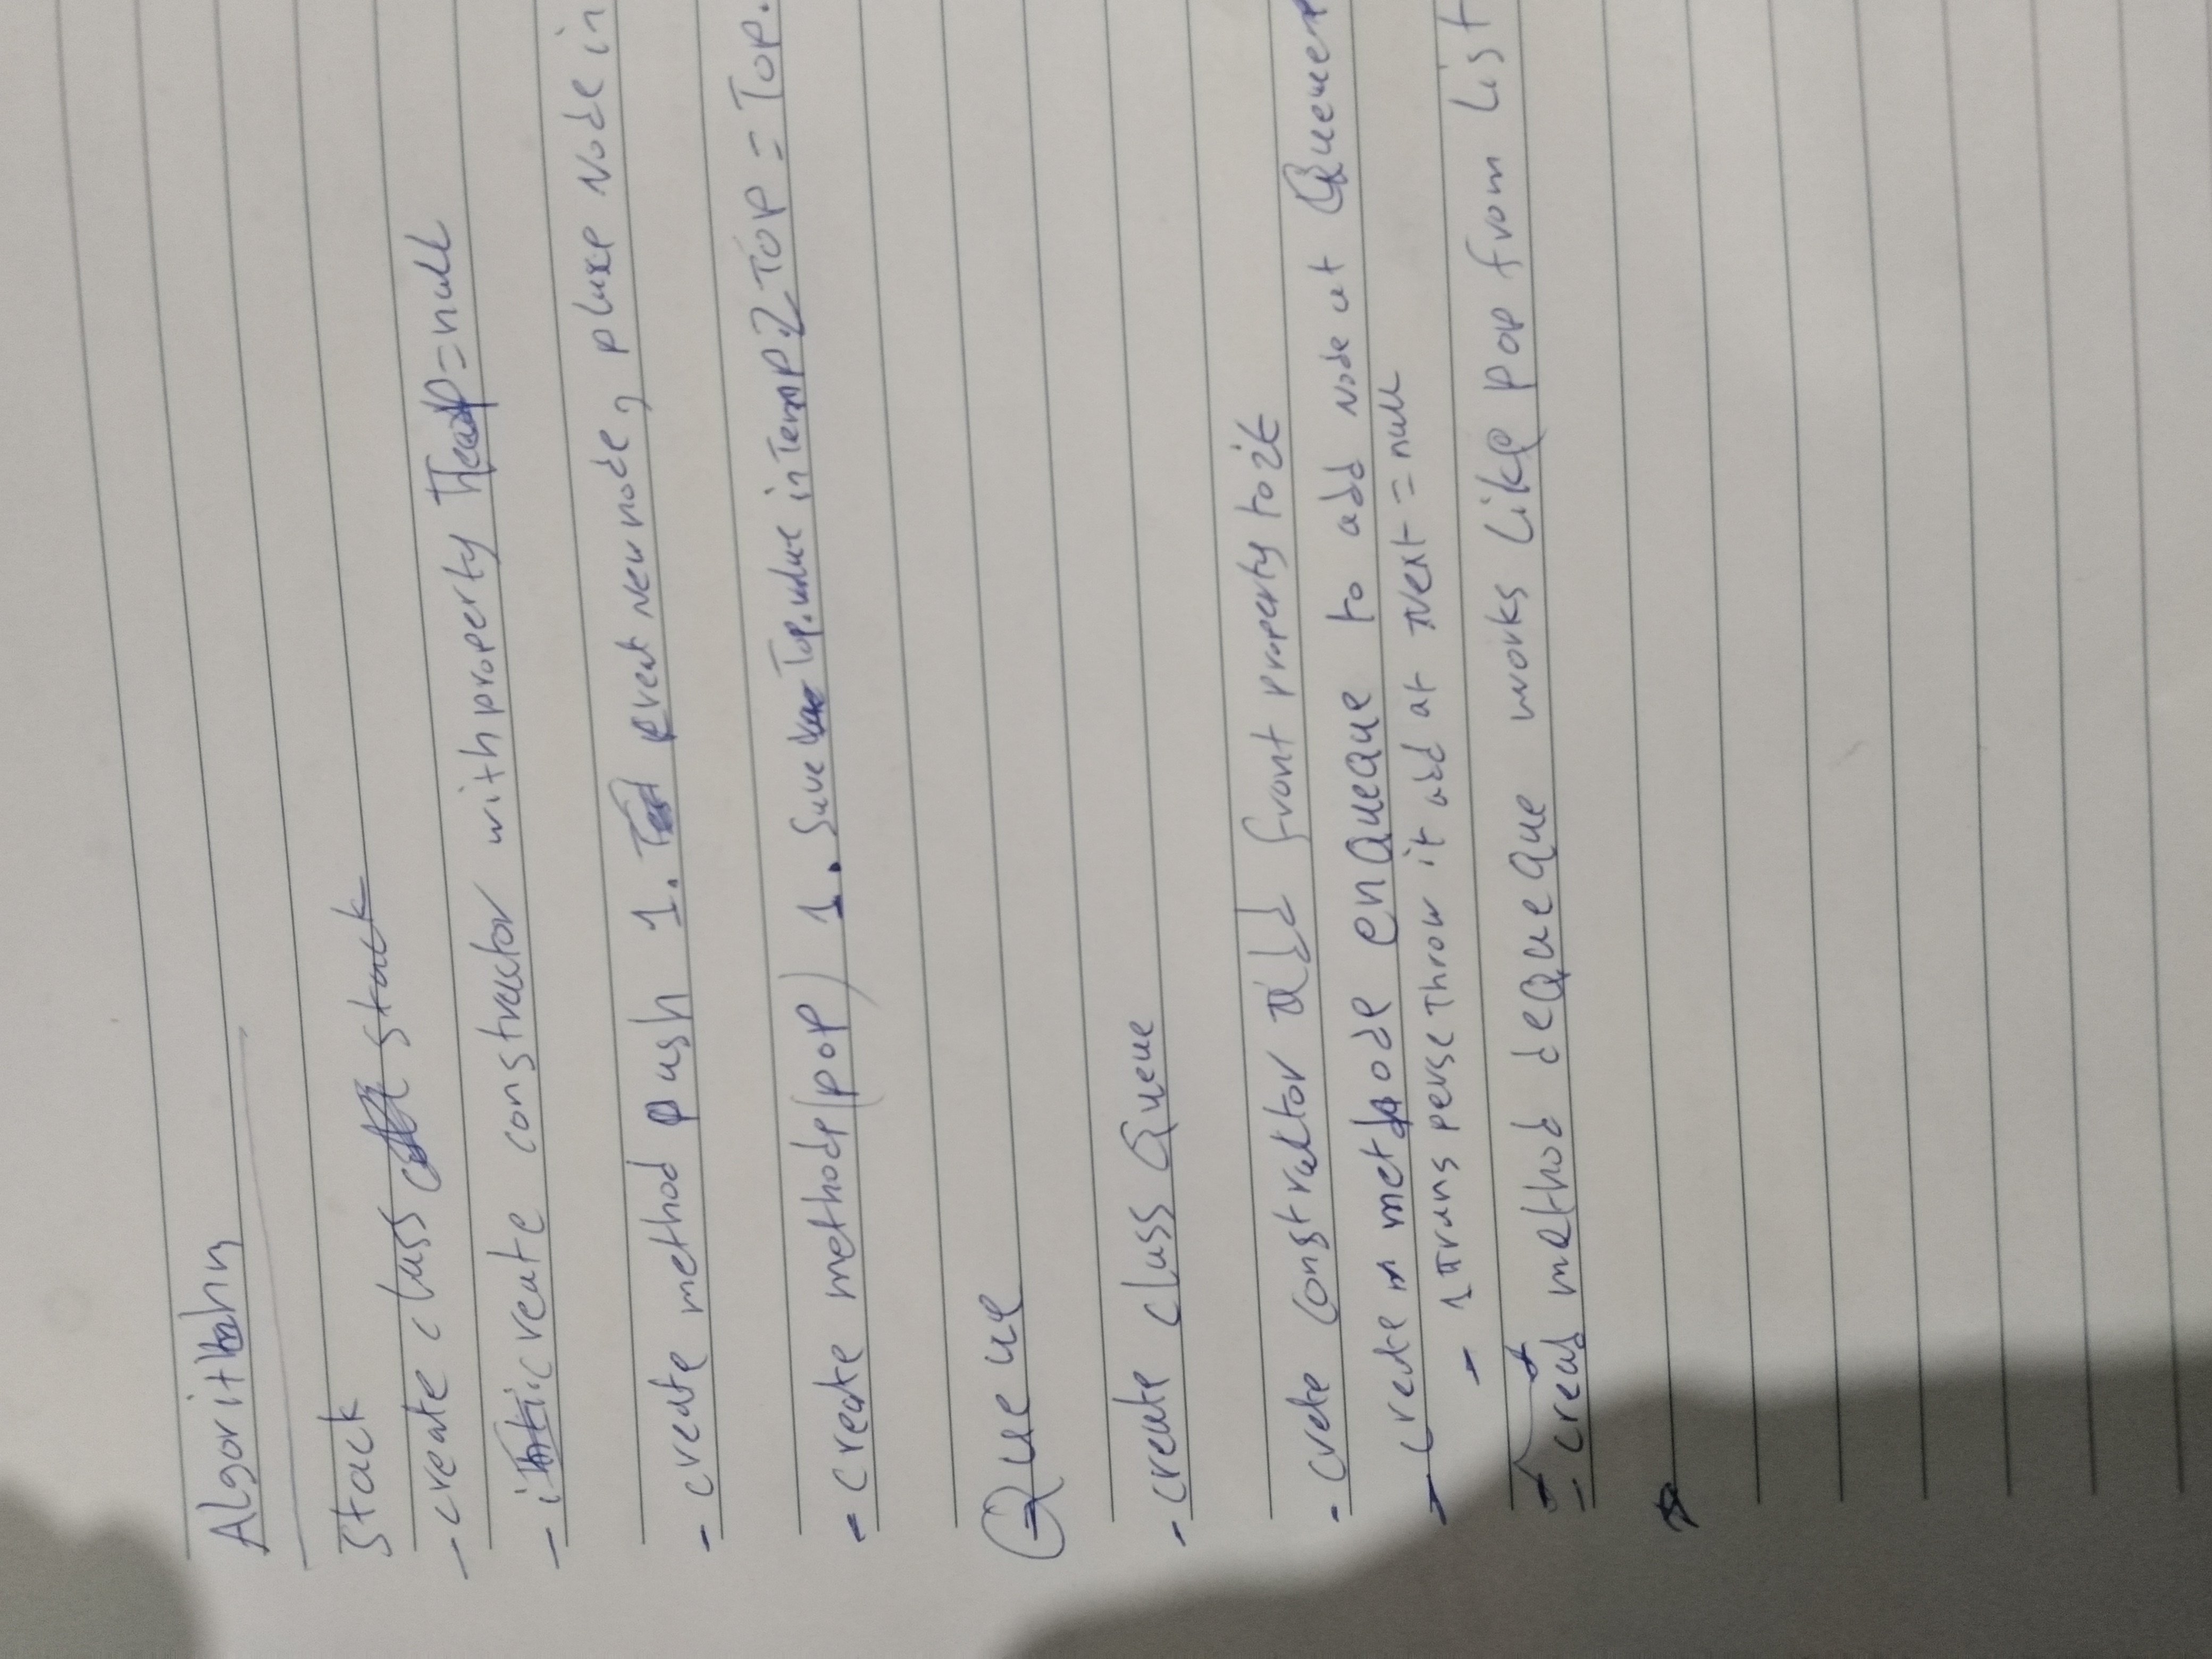 Algorithm
Stack
- create class stack
- create constructor with property Top = null
- create method push 1. creat new node, place Node in
- create methode (pop) 1. Save Top.value in Temp 2 Top = Top.
Queue
- create class Queue
- crete constructor add front property to it
- create methode enQueaue to add node at Queue
- 1 trans perse Throw it add at Next = null
- creat method deQaueQue works Like pop from List